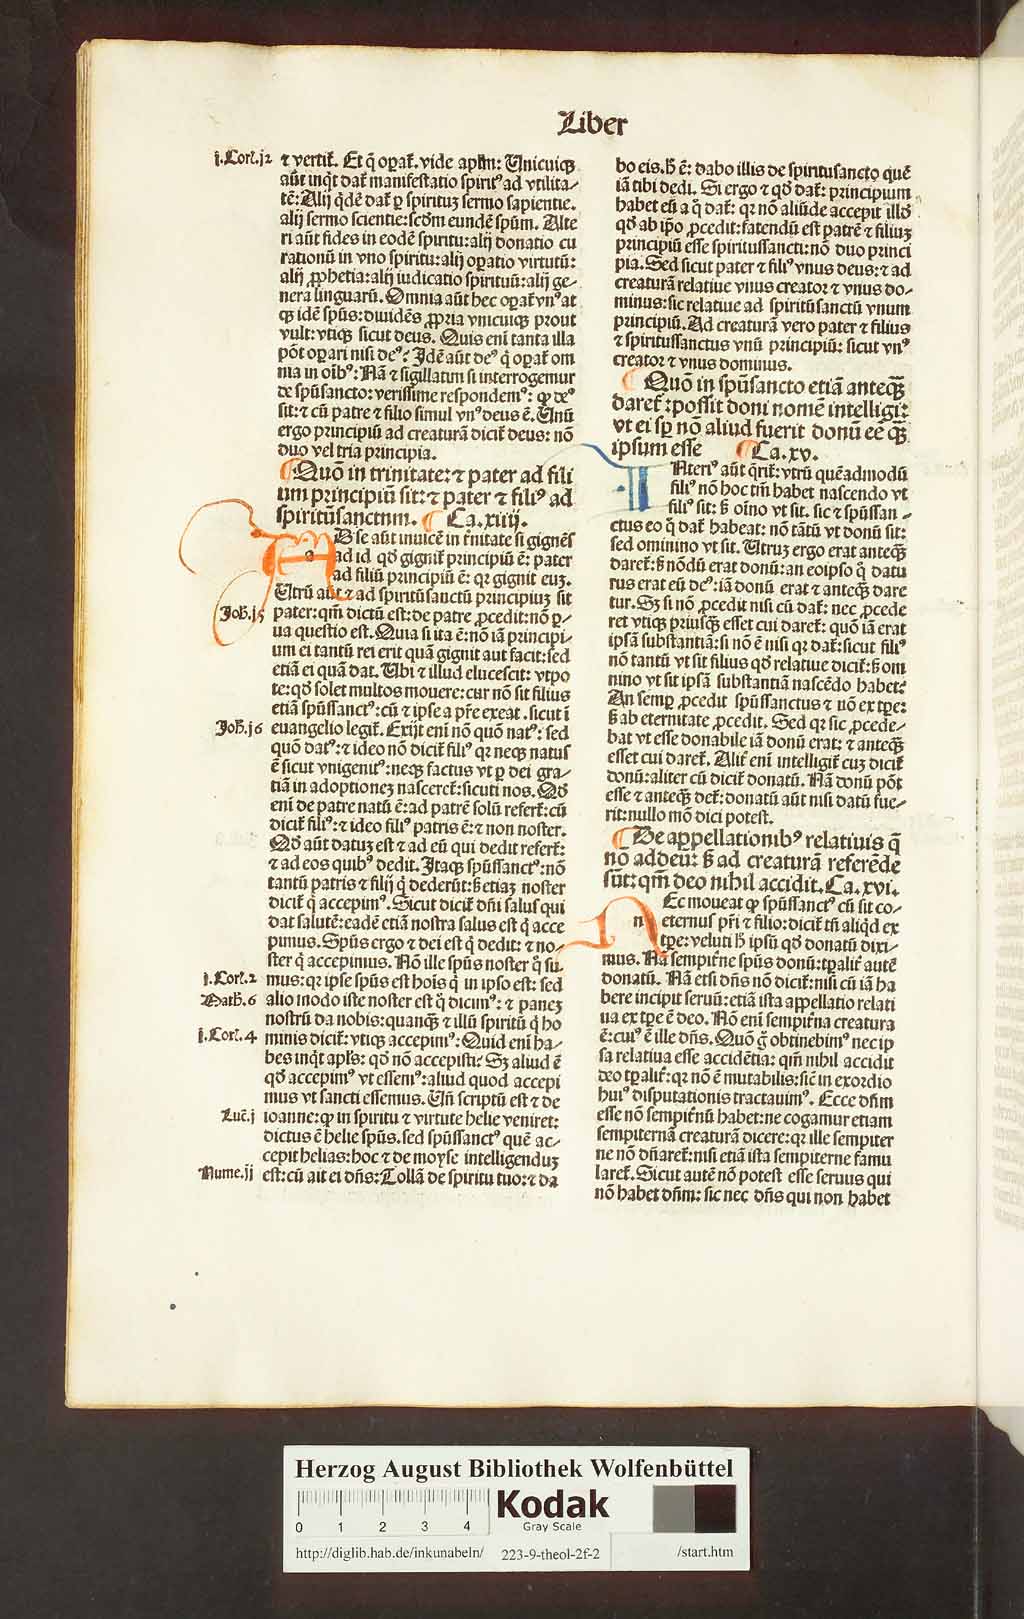 Liber
j.Corꝭ.j2
⁊ vertiť. Et q̄ oꝑať. vide apłm: Unicuiqꝫ
aūt inqt dať manifestatio spiritꝰ ad vtilita-
tē: Alij qdē dať ꝑ spirituꝫ sermo sapientie.
alij sermo scientie: scd̄m eundē spūm. Alte
ri aūt fides in eodē spiritu: alij donatio cu
rationū in vno spiritu: alij oꝑatio virtutū:
alij ꝓphetia: alij iudicatio spirituū: alij ge-
nera linguarū. Omnia aūt hec oꝑať vnꝰ at
qꝫ idē spūs: diuidēs ꝓpria vnicuiqꝫ prout
vult: vtiqꝫ sicut deus. Quis eni tanta illa
pōt oꝑari nisi deꝰ? Idē aūt deꝰ q̇ oꝑať om
nia in oībꝰ: Nā ⁊ sigillatim si interrogemur
de spūsancto: verissime respondemꝰ: ꝙ deꝰ
sit: ⁊ cū patre ⁊ filio simul vnꝰ deus ē. Unū
ergo principiū ad creaturā diciť deus: nō
duo vel tria principia.
Quō in trinitate: ⁊ pater ad fili
um principiū sit: ⁊ pater ⁊ filiꝰ ad
spiritūsanctum. Ca. xiiij.
a
B se aūt inuicē in ťnitate si gignēs
ad id qd̄ gigniť principiū ē: pater
ad filiū principiū ē: qꝛ gignit euꝫ.
Utrū aūt ⁊ ad spiritūsanctū principiuꝫ sit
Joh̄.j5
pater: qm̄ dictū est: de patre ꝓcedit: nō ꝑ-
ua questio est. Quia si ita ē: nō iā principi-
um ei tantū rei erit quā gignit aut facit: sed
etiā ei quā dat. Ubi ⁊ illud elucescit: vtpo
te: qd̄ solet multos mouere: cur nō sit filius
etiā spūssanctꝰ: cū ⁊ ipse a pr̄e exeat. sicut ī
Joh̄.j6
euangelio legiť. Exijt eni nō quō natꝰ: sed
quō datꝰ: ⁊ ideo nō diciť filiꝰ qꝛ neqꝫ natus
ē sicut vnigenitꝰ: neqꝫ factus vt ꝑ dei gra-
tiā in adoptioneꝫ nasceret̄: sicuti nos. Qd̄
eni de patre natū ē: ad patrē solū referť: cū
diciť filiꝰ: ⁊ ideo filiꝰ patris ē: ⁊ non noster.
Qd̄ aūt datuꝫ est ⁊ ad eū qui dedit referť:
⁊ ad eos quibꝰ dedit. Itaqꝫ spūssanctꝰ: nō
tantū patris ⁊ filij q̇ dederūt: ß etiaꝫ noster
diciť q̇ accepimꝰ. Sicut diciť dn̄i salus qui
dat salutē: eadē etiā nostra salus est q̇ acce
pimus. Spūs ergo ⁊ dei est q̇ dedit: ⁊ no-
ster q̇ accepimus. Nō ille spūs noster q̇ su
j.Corꝭ.2
mus: qꝛ ipse spūs est hois q̇ in ipso est: sed
Math̄.6
alio modo iste noster est q̇ dicimꝰ: ⁊ paneꝫ
nostrū da nobis: quanqꝫ ⁊ illū spiritū q̇ ho
j.Corꝭ.4
minis diciť: vtiqꝫ accepimꝰ: Quid eni ha-
bes inqt apłs: qd̄ nō accepisti? Sꝫ aliud ē
qd̄ accepimꝰ vt essemꝰ: aliud quod accepi
mus vt sancti essemus. Uñ scriptū est ⁊ de
Luc̄.j
ioanne: ꝙ in spiritu ⁊ virtute helie veniret:
dictus ē helie spūs. sed spūssanctꝰ quē ac-
cepit helias: hoc ⁊ de moyse intelligenduꝫ
Nume.jj
est: cū ait ei dn̄s: Tollā de spiritu tuo: ⁊ da
bo eis. h̄ ē: dabo illis de spiritusancto quē
iā tibi dedi. Si ergo ⁊ qd̄ dať: principium
habet eū a q̇ dať: qꝛ nō aliūde accepit illd̄
qd̄ ab ipo ꝓcedit: fatendū est patrē ⁊ filiuꝫ
principiū esse spiritussancti: nō duo princi
pia. Sed sicut pater ⁊ filiꝰ vnus deus: ⁊ ad
creaturā relatiue vnus creator ⁊ vnus do-
minus: sic relatiue ad spiritūsanctū vnum
principiū. Ad creaturā vero pater ⁊ filius
⁊ spiritussanctus vnū principiū: sicut vnꝰ
creator ⁊ vnus dominus.
Quō in spūsancto etiā anteqꝫ
dareť: possit doni nomē intelligi:
vt ei sꝑ nō aliud fuerit donū eē qꝫ
ipsum esse Ca. xv.
I
Nteriꝰ aūt q̄riť: vtrū quēadmodū
filiꝰ nō hoc tm̄ habet nascendo vt
filiꝰ sit: ß oīno vt sit. sic ⁊ spūssan-
ctus eo q̇ dať habeat: nō tātū vt donū sit:
sed ominino vt sit. Utruꝫ ergo erat anteqꝫ
dareť: ß nōdū erat donū: an eoipso q̇ datu
rus erat eū deꝰ: iā donū erat ⁊ anteqꝫ dare
tur. Sꝫ si nō ꝓcedit nisi cū dať: nec ꝓcede
ret vtiqꝫ priusqꝫ esset cui dareť: quō iā erat
ipsā substantiā: si nō ē nisi qꝛ dať: sicut filiꝰ
nō tantū vt sit filius qd̄ relatiue diciť: ß om
nino vt sit ipsā substantiā nascēdo habet?
An semꝑ ꝓcedit spūssanctus ⁊ nō ex tꝑe:
ß ab eternitate ꝓcedit. Sed qꝛ sic ꝓcede-
bat vt esse donabile iā donū erat: ⁊ anteqꝫ
esset cui dareť. Aliť eni intelligiť cuꝫ diciť
donū: aliter cū diciť donatū. Nā donū pōt
esse ⁊ anteqꝫ deť: donatū aūt nisi datū fue-
rit: nullo mō dici potest.
De appellationibꝰ relatiuis q̄
nō ad deū: ß ad creaturā referēde
sūt: qm̄ deo nihil accidit. Ca. xvi.
n
Ec moueat ꝙ spūssanctꝰ cū sit co-
eternus pr̄i ⁊ filio: diciť tn̄ aliqd ex
tꝑe: veluti h̄ ipsū qd̄ donatū dixi-
mus. Nā sempiťne spūs donū: tꝑaliť autē
donatū. Nā etsi dn̄s nō diciť: nisi cū iā ha
bere incipit seruū: etiā ista appellatio relati
ua ex tꝑe ē deo. Nō eni sempiťna creatura
ē: cuiꝰ ē ille dn̄s. Quō g̊ obtinebimꝰ nec ip
sa relatiua esse accidētia: qm̄ nihil accidit
deo tꝑaliť: qꝛ nō ē mutabilis: sic̄ in exordio
huiꝰ disputationis tractauimꝰ. Ecce dn̄m
esse nō sempiťnū habet: ne cogamur etiam
sempiternā creaturā dicere: qꝛ ille sempiter
ne nō dn̄areť: nisi etiā ista sempiterne famu
lareť. Sicut autē nō potest esse seruus qui
nō habet dn̄m: sic nec dn̄s qui non habet
Herzog August Bibliothek Wolfenbüttel
0 1 2 3 4
Kodak
Gray Scale
http://diglib.hab.de/inkunabeln/ 223-9-theol-2f-2 /start.htm